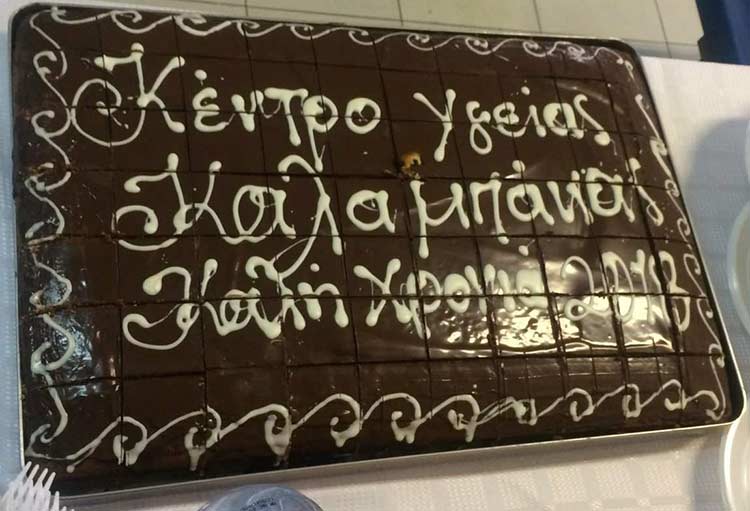 Κέντρο Υγείας
Καλαμπάκας
Καλή Χρονιά 2018